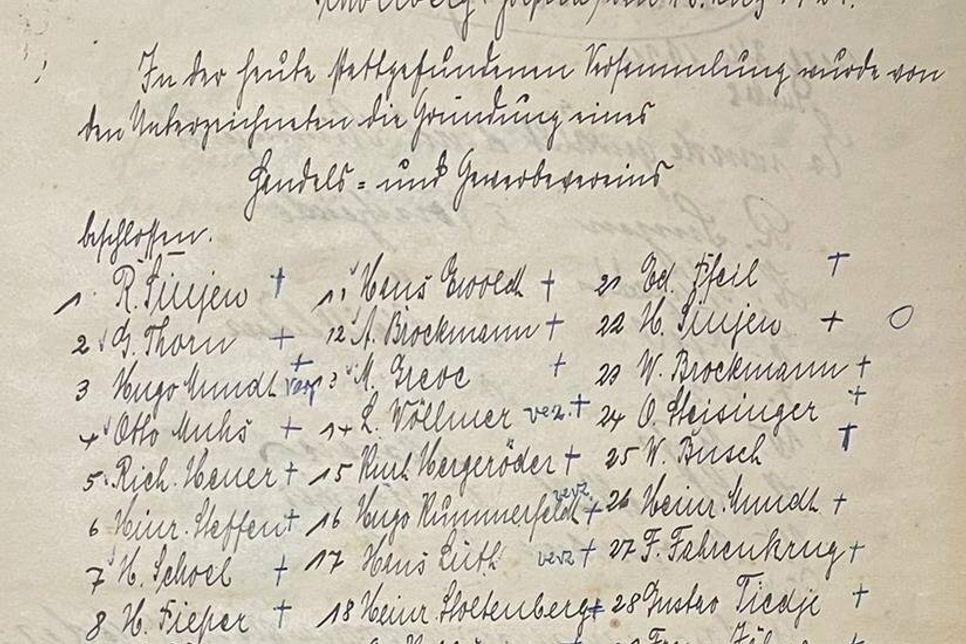 In der heute stattgefundenen Versammlung wurde von
den Unterzeichneten die Gründung eines
Handels- und Gewerbevereins
beschlossen.
1 R. Sinjen † 11 Hans Ewoldt † 21 Ed. Pfeil †
2 G. Thorn † 12 A. Brockmann † 22 H. Sinjen †
3 Hugo Mundt † verz 13 M. † 23 W. Brockmann †
4 Otto Muhs † 14 L. Völlmer verz. † 24 O. Steisinger †
5 Rich. Hauer † 15 Kurt Hergeröder † 25 W. Busch †
6 Heinr. Steffen † 16 Hugo Kummerfeldt verz. † 26 Heinr. Mundt †
7 H. Schoel † 17 Hans Lüth verz † 27 F. Fahrenkrug †
8 H. † 18 Heinr. Stoltenberg † 28 Gustav Tiedje †